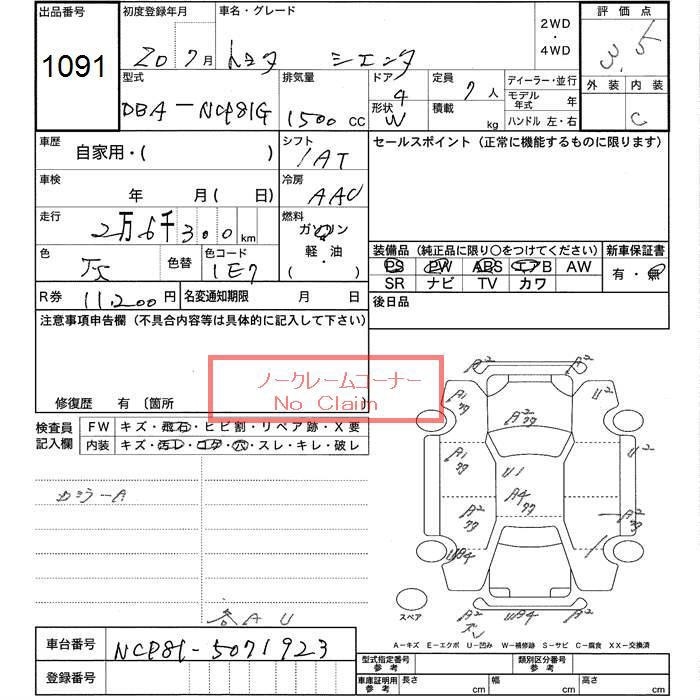 出品番号 初度登録年月 車名・グレード 2WD・4WD 評価点
1091 20 7月 トヨタ シエンタ 3.5
型式 排気量 ドア 定員 ディーラー・並行 外装 内装
DBA-NCP81G 1500 CC 4 7人 モデル年式 年 C
形状 W 積載 kg ハンドル 左・右
車歴 自家用・( ) シフト IAT セールスポイント (正常に機能するものに限ります)
車検 年 月( 日) 冷房 AAC
走行 2万6千300 km 燃料 ガソリン 軽・油 ( )
装備品 (純正品に限り○をつけてください) 新車保証書
色 色替 色コード 1E7 PS PW ABS エアB AW 有・無
SR ナビ TV カワ
R券 11,200円 名変通知期限 月 日 後日品
注意事項申告欄 (不具合内容等は具体的に記入して下さい)
ノークレームコーナー
No Claim
修復歴 有 〔箇所
検査員記入欄 FW キズ・飛石・ヒビ割・リペア跡・X要
内装 キズ・汚レ・コゲ・穴・スレ・キレ・破レ
A2 A2
A1 77 A2 77 U2
A1 77 U1 A2
A2 77 A4 77 A2
UB4
カラーA
スペア
各AU A2 UB4 A2
A-キズ E-エクボ U-凹み W-補修跡 S-サビ C-腐食 XX-交換済
車台番号 NCP81-5071923
型式指定番号 参考 類別区分番号 参考
登録番号 車庫証明用 参考 長さ cm 幅 cm 高さ cm